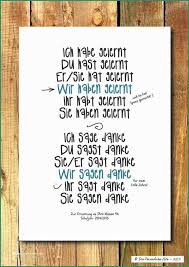 Ich habe gelernt
Du hast gelernt
Er/Sie hat gelernt
Wir haben gelernt
Ihr habt gelernt
Sie haben gelernt
Ich sage danke
Du sagst danke
Sie/Er sagt danke
Wir sagen danke
Ihr sagt danke
Sie sagen danke
Zur Erinnerung an Ihre Klasse 4a
Schuljahr 2014/2015